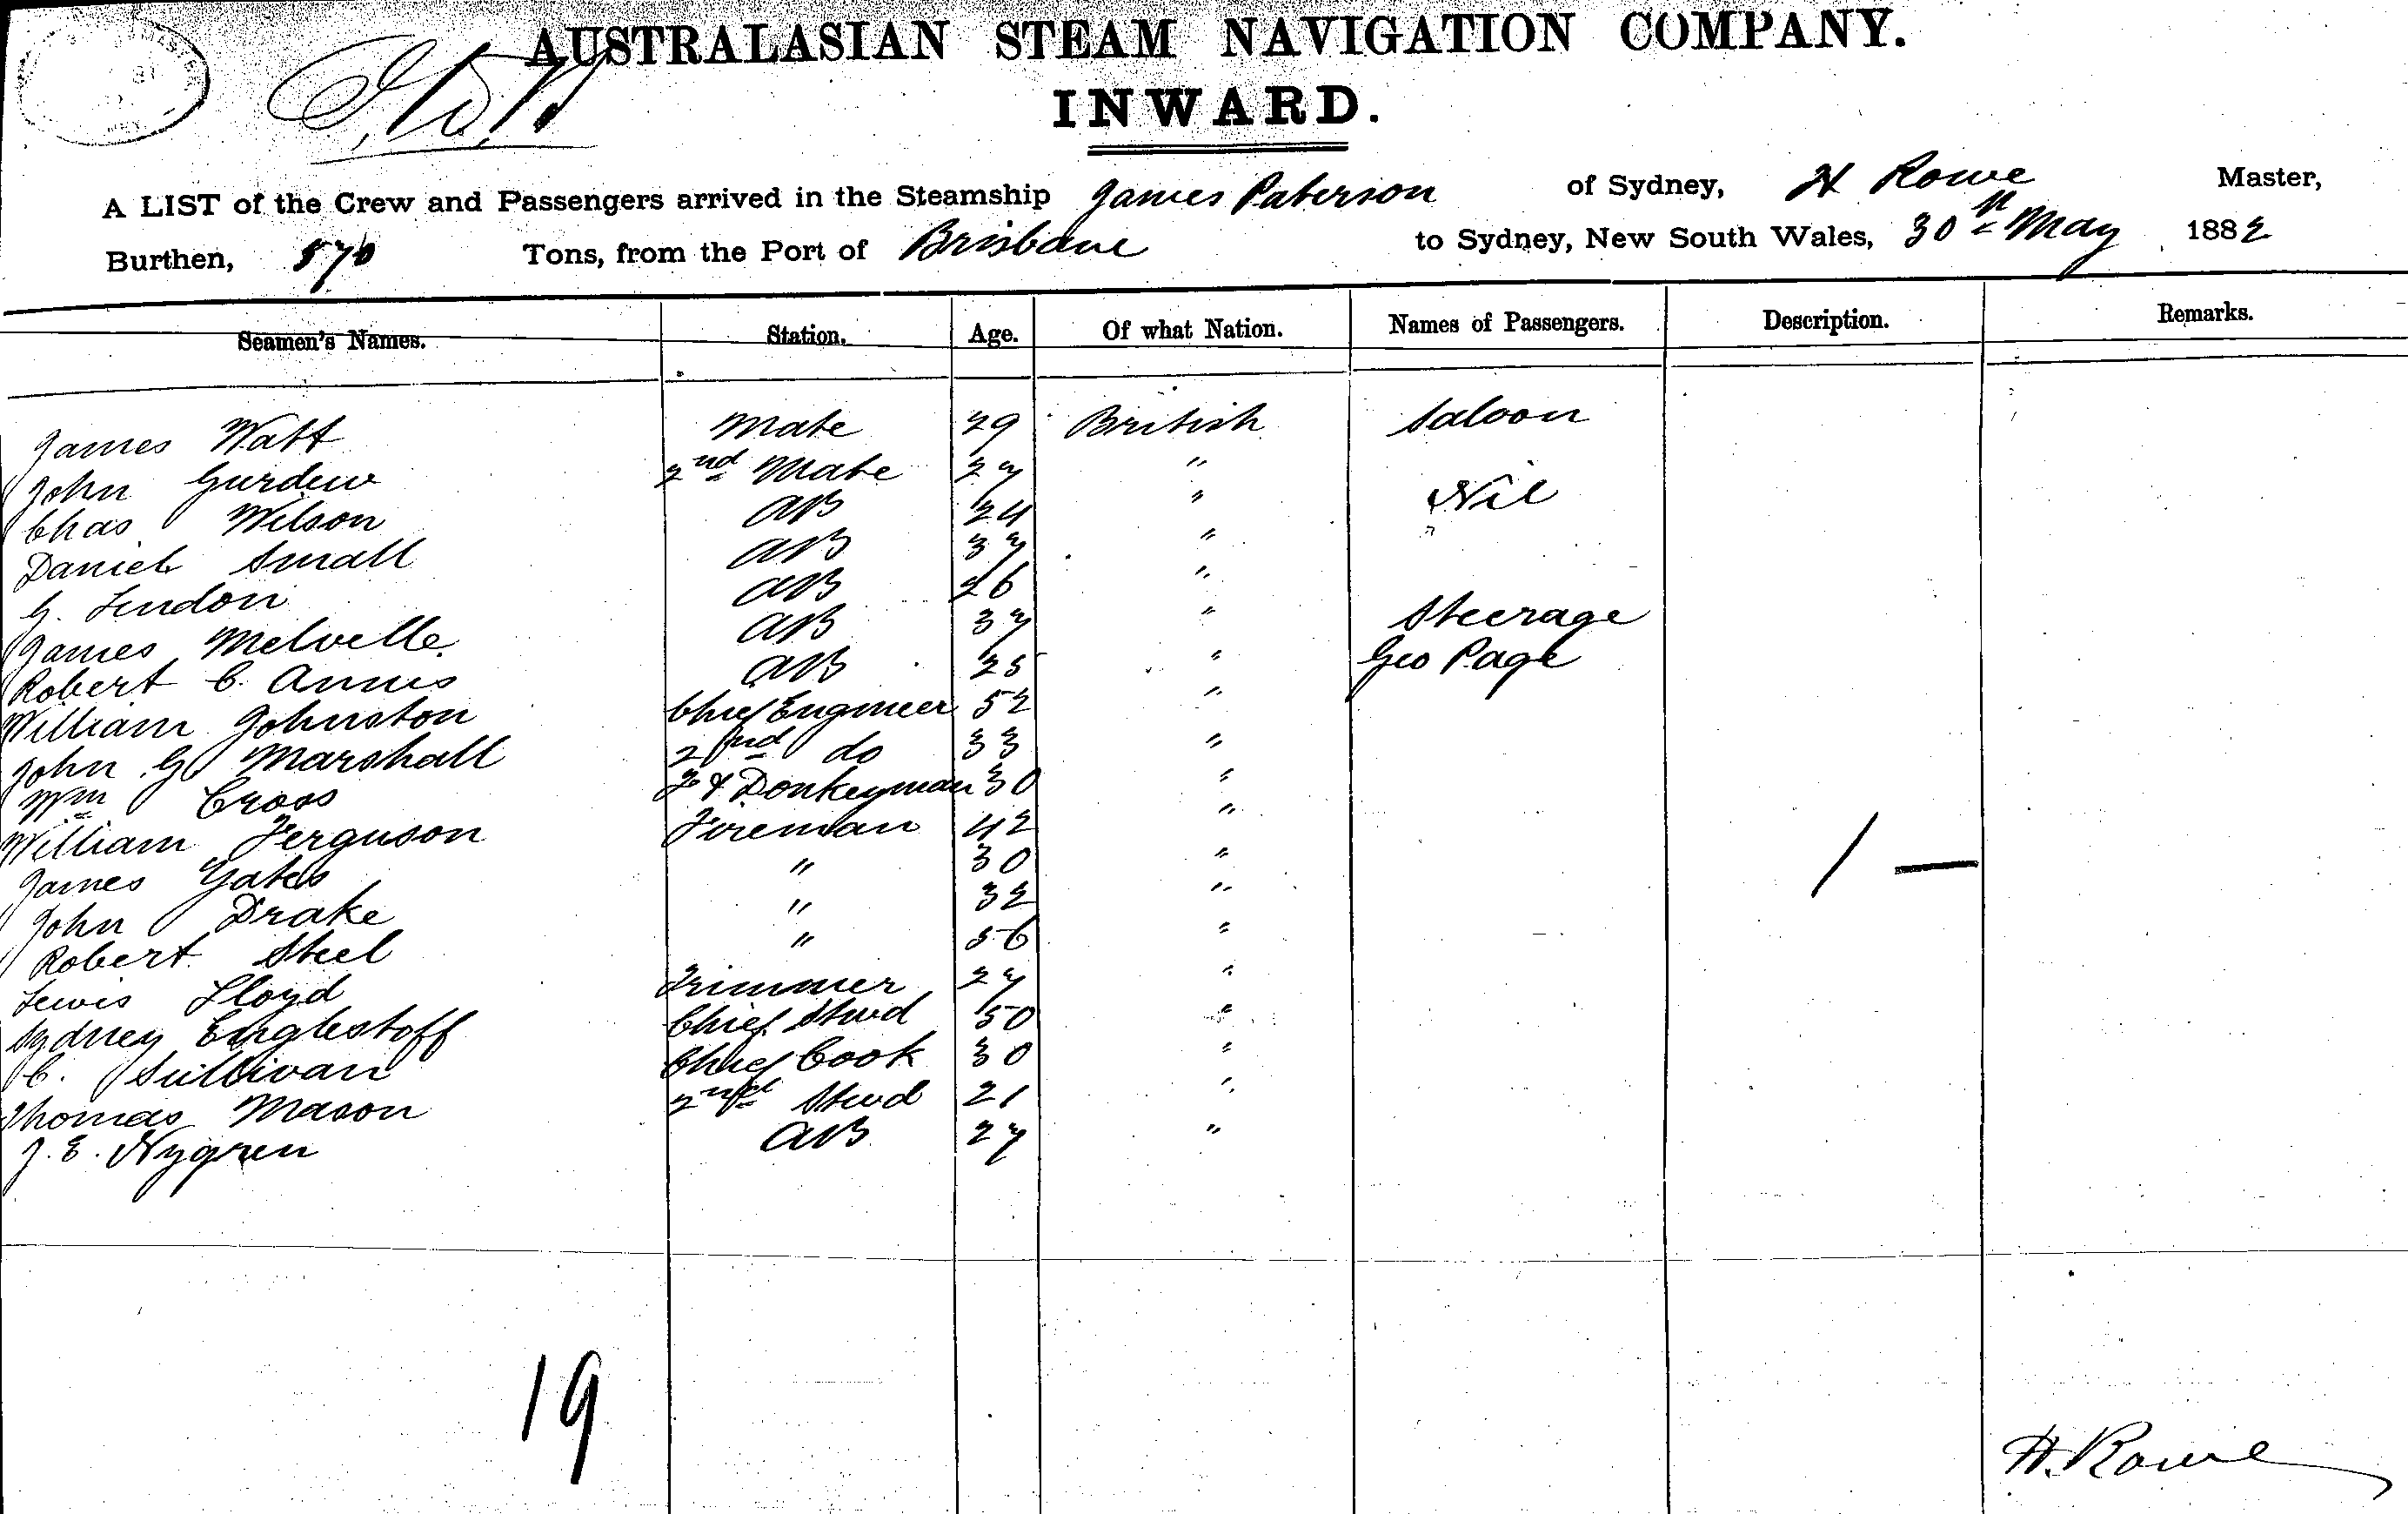 AUSTRALASIAN STEAM NAVIGATION COMPANY.
INWARD.
A LIST of the Crew and Passengers arrived in the Steamship James Paterson of Sydney, H Rowe Master,
Burthen, 570 Tons, from the Port of Brisbane to Sydney, New South Wales, 30th May 1882
Seamen's Names. Station. Age. Of what Nation. Names of Passengers. Description. Remarks.
James Watt Mate 29 British Saloon
John 2nd Mate 27 "
Chas Wilson AB 24 " Nil
Daniel Small AB 37 "
G. Lindon AB 26 "
James Melville AB 37 " Steerage
Robert C. Annis AB 25 " Geo Page
William Johnston Chief Engineer 52 "
John G Marshall 2nd do 33 "
Wm Cross F & Donkeyman 30 "
William Ferguson Fireman 42 "
James Yates " 30 " 1 —
John Drake " 32 "
Robert Steel " 56 "
Lewis Lloyd Trimmer 27 "
Sydney Englestoff Chief Stwd 50 "
C. Sullivan Chief Cook 30 "
Thomas Mason 2nd Stwd 21 "
J. E. Nygren AB 27 "
19
H. Rowe